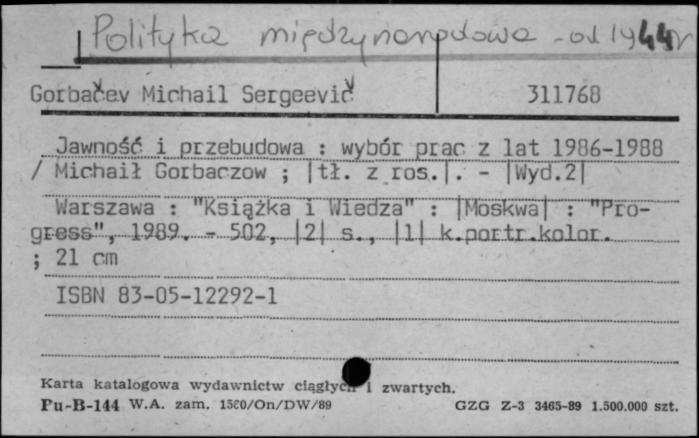 Polityka międzynarodowa - od 1944 r
Gorbačev Michail Sergeevič 311768
Jawność i przebudowa : wybór prac z lat 1986-1988
/ Michaił Gorbaczow ; |tł. z ros.|. - |Wyd.2|
Warszawa : "Książka i Wiedza" : |Moskwa| : "Pro-
gress", 1989. - 502, |2| s., |1| k.portr.kolor.
; 21 cm
ISBN 83-05-12292-1
Karta katalogowa wydawnictw ciągłych i zwartych.
Pu-B-144 W.A. zam. 1560/On/DW/89 GZG Z-3 3465-89 1.500.000 szt.